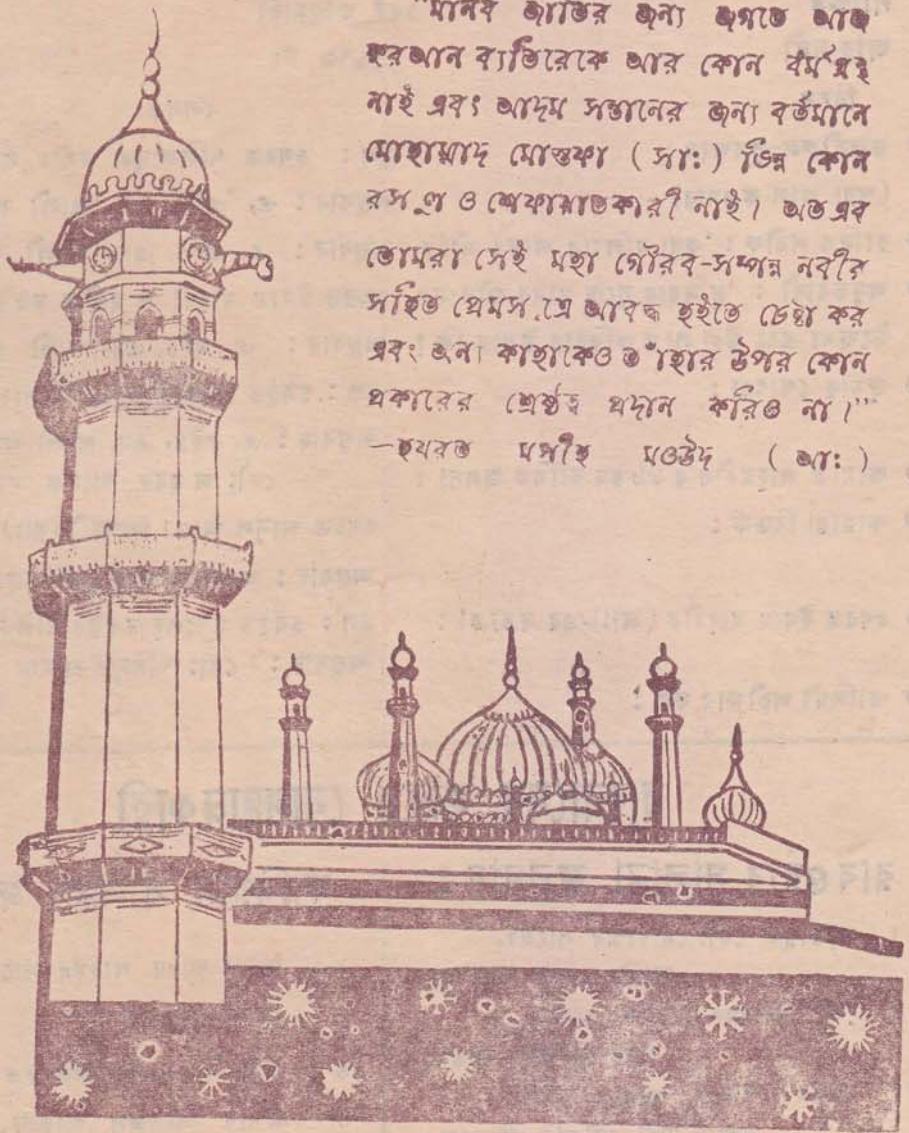 "মানব জাতির জন্য জগতে আজ
কুরআন ব্যতিরেকে আর কোন ধর্ম গ্রন্থ
নাই এবং আদম সন্তানের জন্য বর্তমানে
মোহাম্মাদ মোস্তফা ( সাঃ ) ভিন্ন কোন
রসূল ও শেফায়াতকারী নাই। অতএব
তোমরা সেই মহা গৌরব-সম্পন্ন নবীর
সহিত প্রেমসূত্রে আবদ্ধ হইতে চেষ্টা কর
এবং অন্য কাহাকেও তাঁহার উপর কোন
প্রকারের শ্রেষ্ঠত্ব প্রদান করিও না।"
—হযরত মসীহ মওউদ ( আঃ )